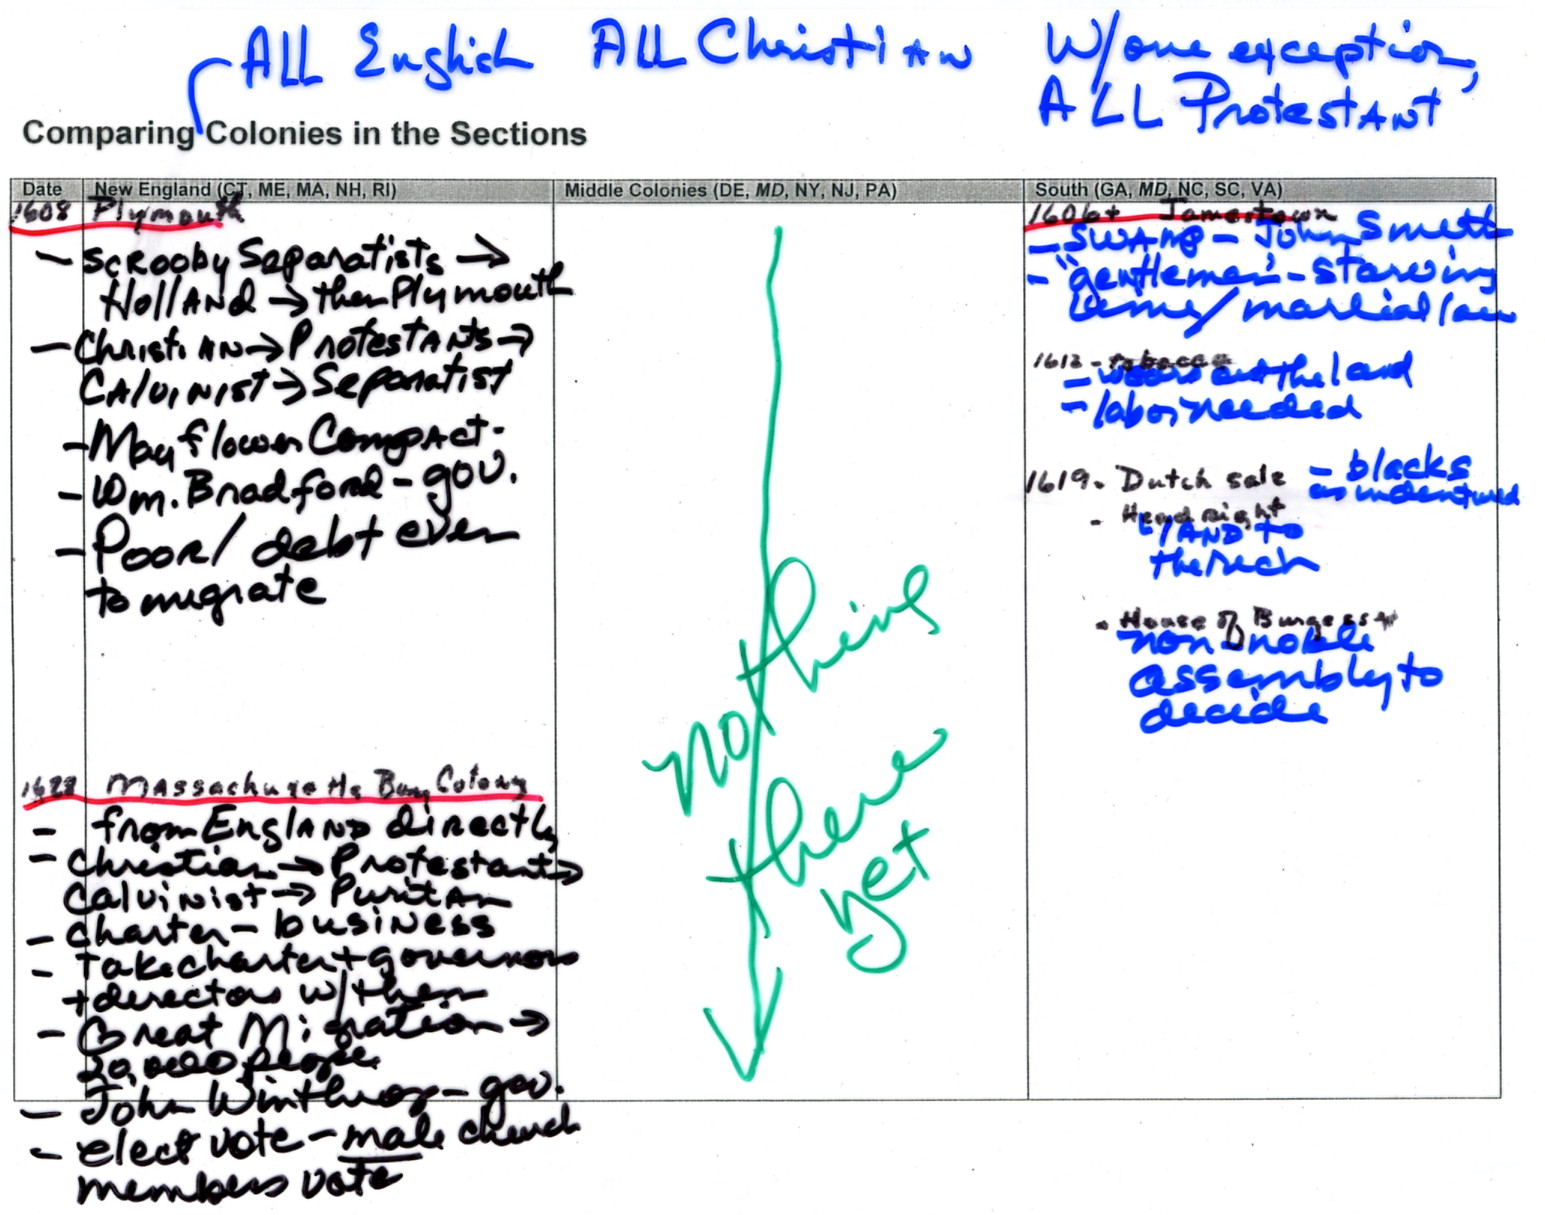 ALL English ALL Christian W/one exception,
ALL Protestant
Comparing Colonies in the Sections
Date New England (CT, ME, MA, NH, RI) Middle Colonies (DE, MD, NY, NJ, PA) South (GA, MD, NC, SC, VA)
1608 Plymouth
- Scrooby Separatists →
Holland → then Plymouth
- Christian → Protestants →
Calvinist → Separatist
- Mayflower Compact -
- Wm. Bradford - gov.
- Poor / debt even
to migrate
1628 Massachusetts Bay Colony
- from England directly
- Christian → Protestant →
Calvinist → Puritan
- charter - business
- take charter + governors
+ directors w/ them
- Great Migration →
20,000 people
- John Winthrop - gov.
- elect vote - male church
members vote
nothing
there
yet
1606+ Jamestown
- swamp - John Smith
- "gentlemen" - starving
time / martial law
1612 - tobacco
- wears out the land
- labor needed
1619. Dutch sale - blacks
as indentured
- Headright
land to
the rich
. House of Burgesses
non-noble
assembly to
decide